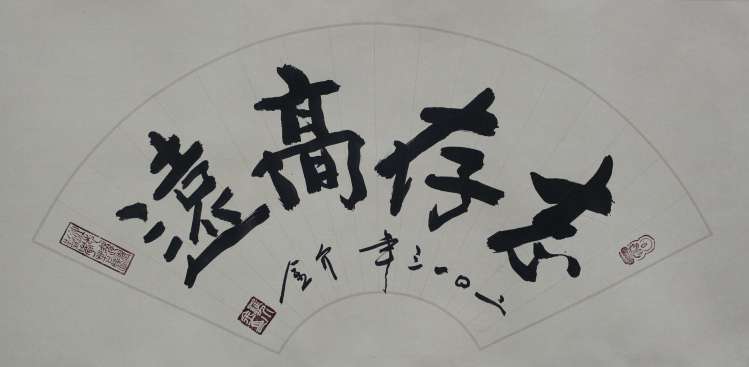 志存高遠
二〇一三年